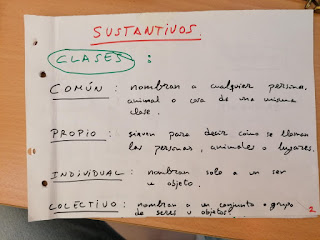 SUSTANTIVOS.
CLASES :
COMÚN : nombran a cualquier persona,
animal o cosa de una misma
clase.
PROPIO : sirven para decir cómo se llaman
las personas, animales o lugares.
INDIVIDUAL : nombran solo a un ser
u objeto.
COLECTIVO : nombran a un conjunto o grupo
de seres u objetos.
2